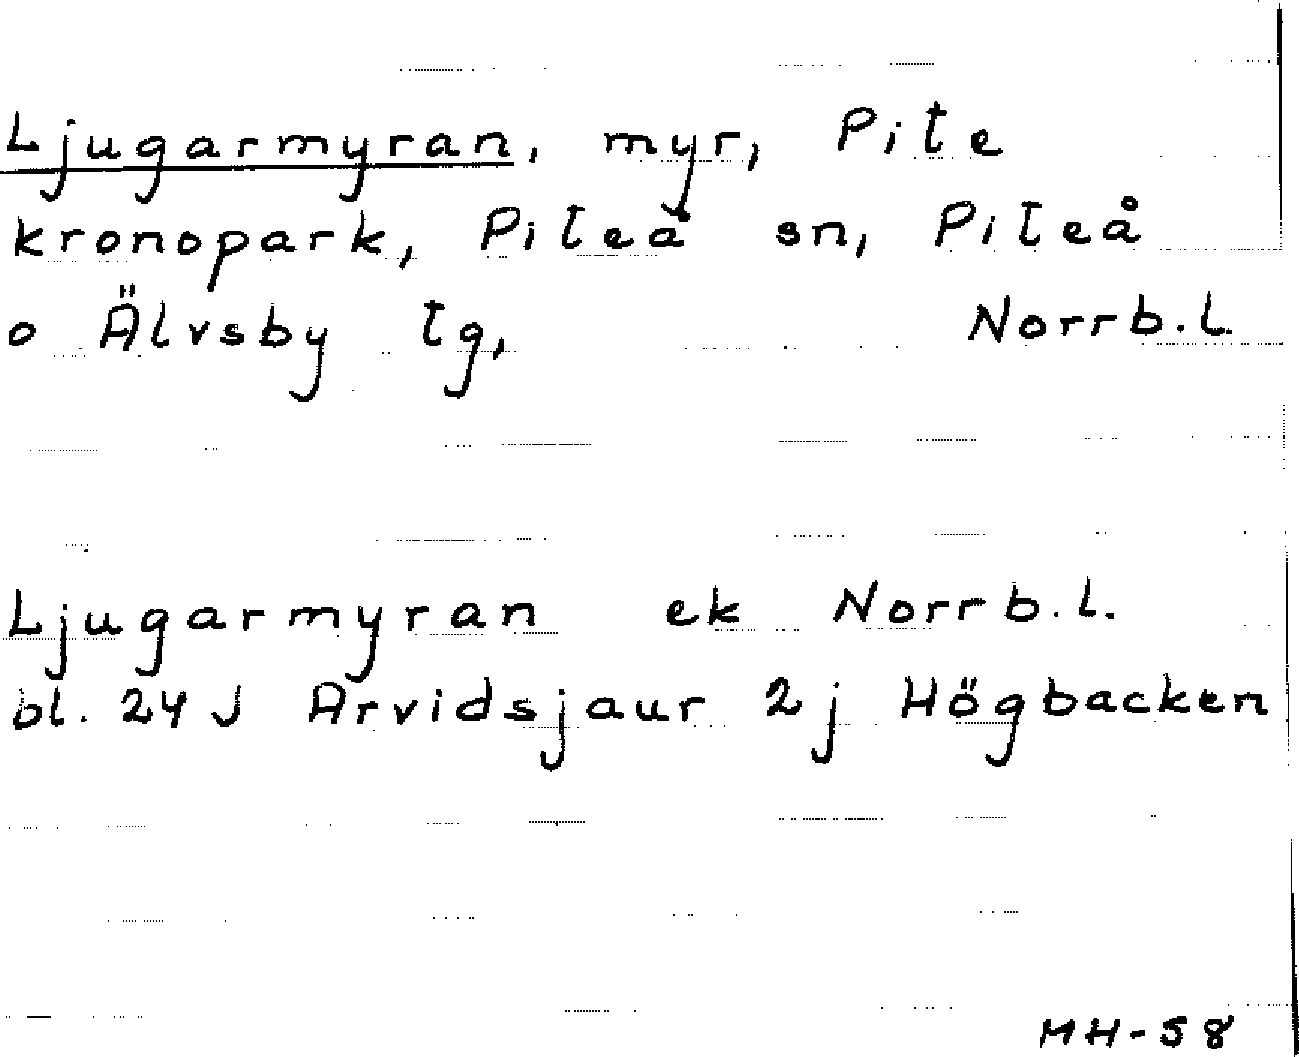 Ljugarmyran, myr, Pite
kronopark, Piteå sn, Piteå
o Älvsby tg, Norrb.l.
Ljugarmyran ek Norrb.l.
bl. 24 J Arvidsjaur 2 j Högbacken
MH-58